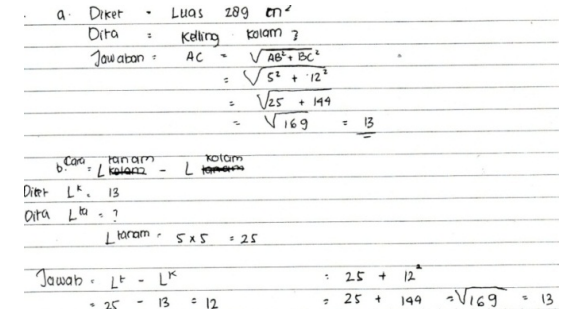 a. Diket : Luas 289 cm²
Dita : Keliling kolam ?
Jawaban : AC = √AB² + BC²
= √5² + 12²
= √25 + 144
= √169 = 13
b. Cara = L tanam kolam - L kolam tanam
Diket Lᵏ = 13
Dita Lᵗᵃ = ?
L tanam = 5 x 5 = 25
Jawab : Lᵗ - Lᵏ = 25 + 12²
= 25 - 13 = 12 = 25 + 144 = √169 = 13